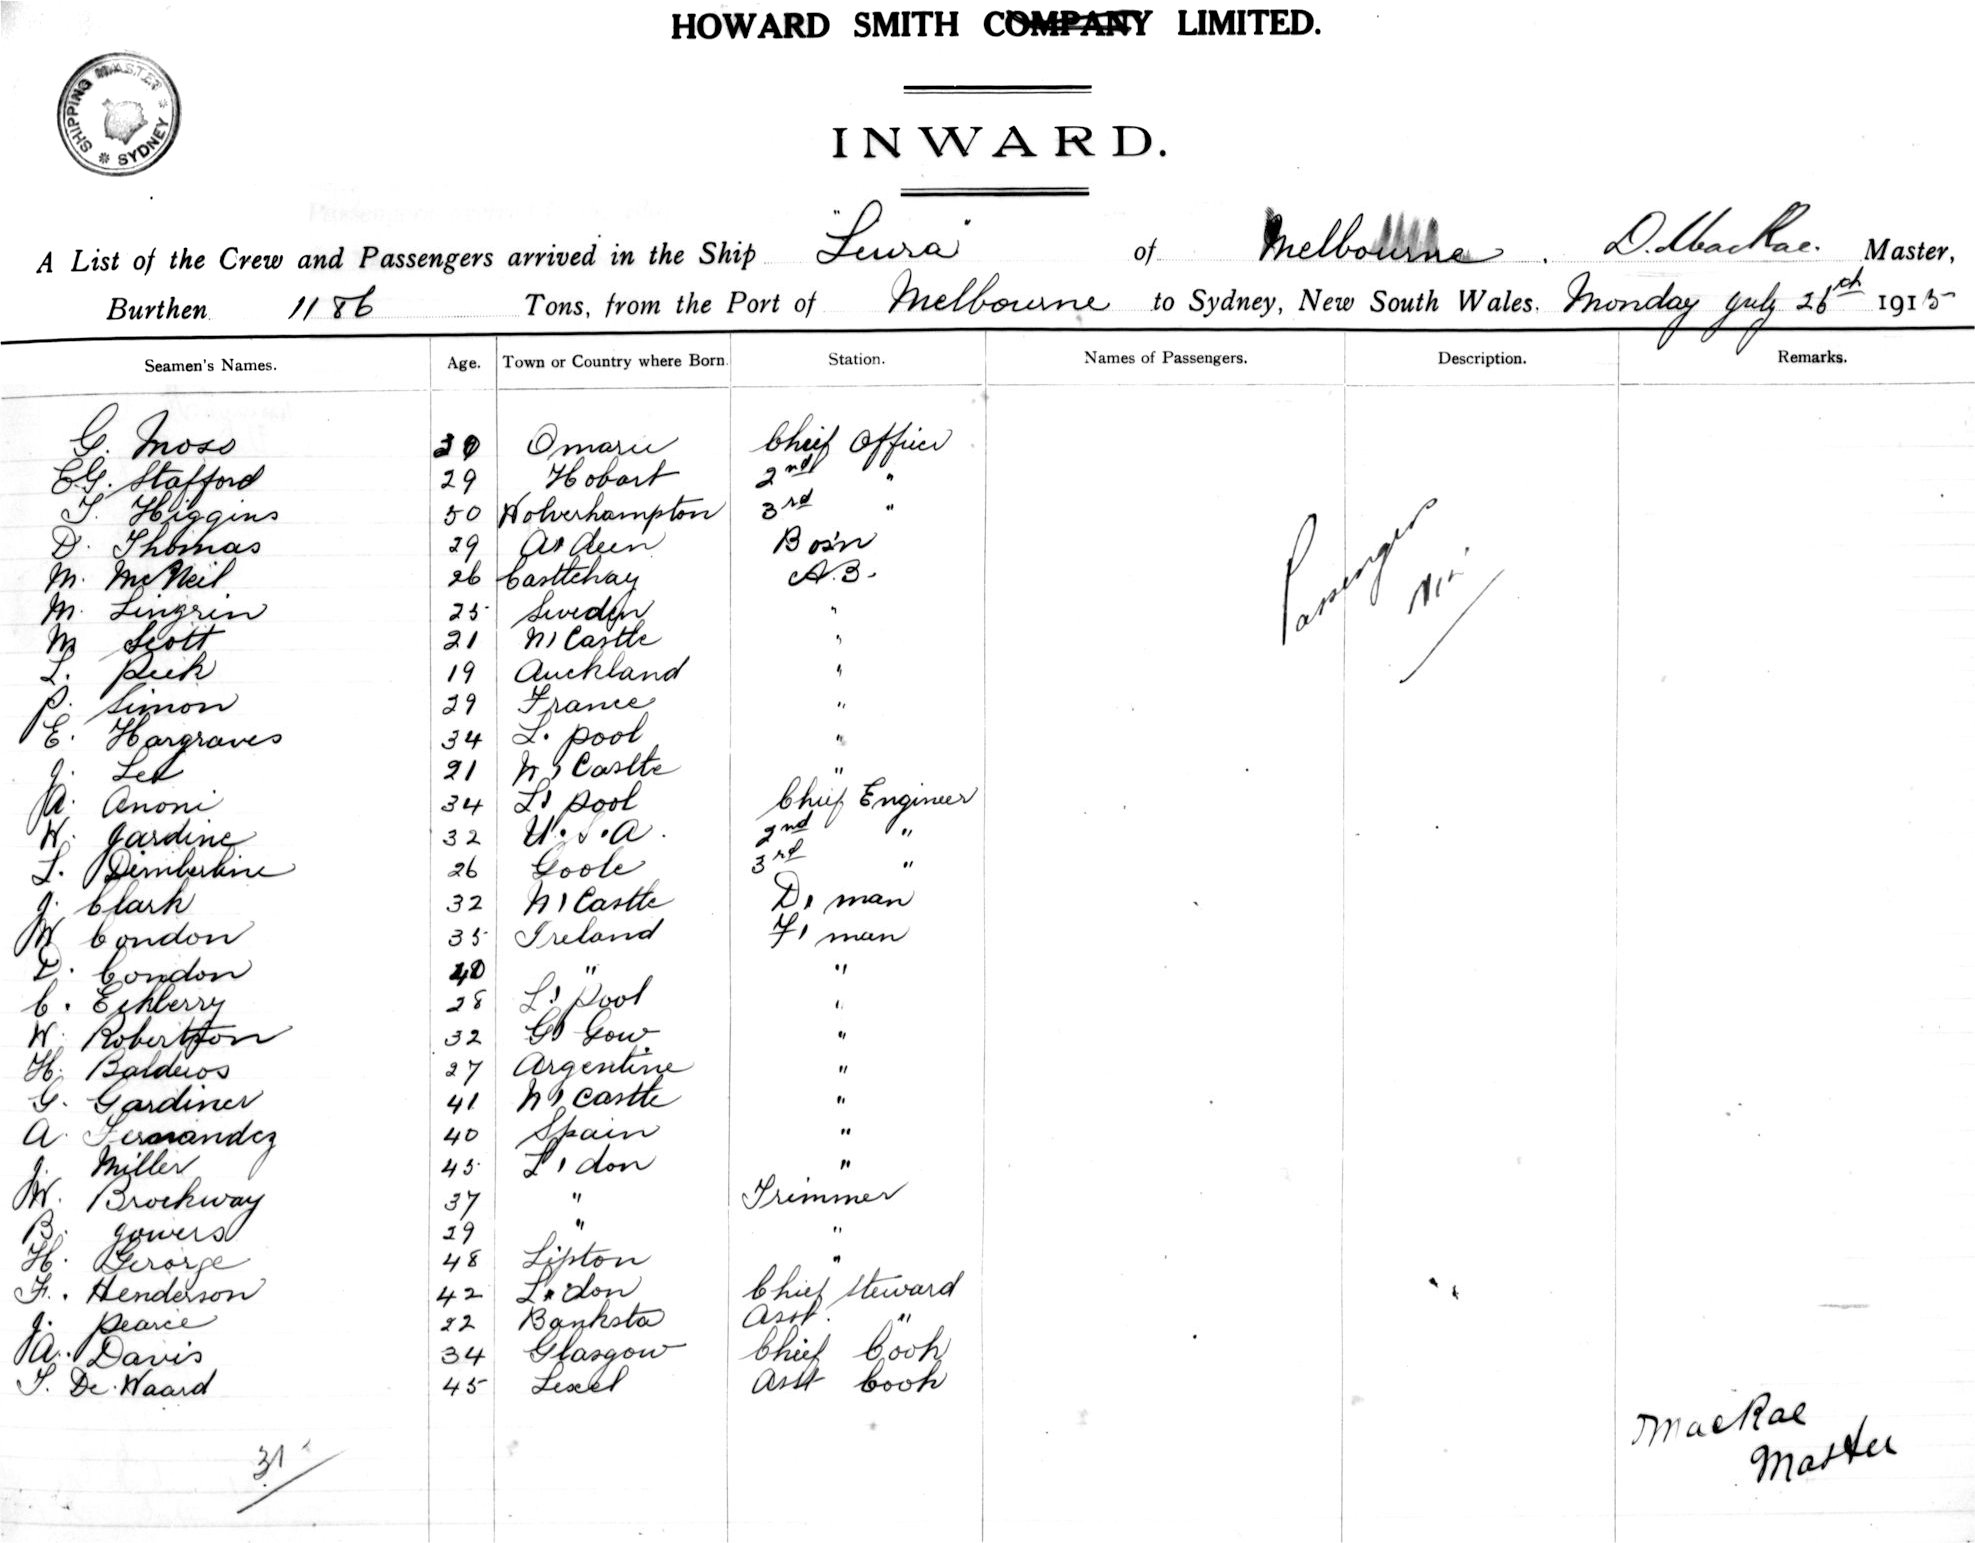 HOWARD SMITH COMPANY LIMITED.
SHIPPING MASTER * SYDNEY *
INWARD.
A List of the Crew and Passengers arrived in the Ship "Leura" of Melbourne. D. MacRae. Master,
Burthen 1186 Tons, from the Port of Melbourne to Sydney, New South Wales. Monday July 26th 1915
Seamen's Names. Age. Town or Country where Born. Station. Names of Passengers. Description. Remarks.
G. Moss Omaru Chief Officer
E.G. Stafford 29 Hobart 2nd "
T. Higgins 50 Wolverhampton 3rd "
D. Thomas 29 Bos'n
M. McNeil 26 Castlebay A.B.
M. Lingrin 25 Sweden "
M Scott 21 N'Castle "
L. Peek 19 Auckland "
P. Simon 29 France "
E. Hargraves 34 L. pool "
J. Lee 21 N'Castle "
A. Anoni 34 L'pool Chief Engineer
W. Jardine 32 U.S.A. 2nd "
L. 26 Goole 3rd "
J. Clark 32 N'Castle D'man
W Condon 35 Ireland F'man
D. Condon 40 " "
C. Eckberry 28 L'pool "
W. Robertson 32 G'Gow "
H. Balderos 27 Argentine "
G. Gardiner 41 N'Castle "
A. Fernandez 40 Spain "
J. Miller 45 L'don "
W. Brockway 37 " Trimmer
B. Jowers 29 " "
H. George 48 Lipton "
F. Henderson 42 L'don Chief Steward
J. Pearce 22 Banksta Asst. "
A. Davis 34 Glasgow Chief Cook
T. De Waard 45 Texel Asst Cook
Passengers
Nil
31
MacRae
Master